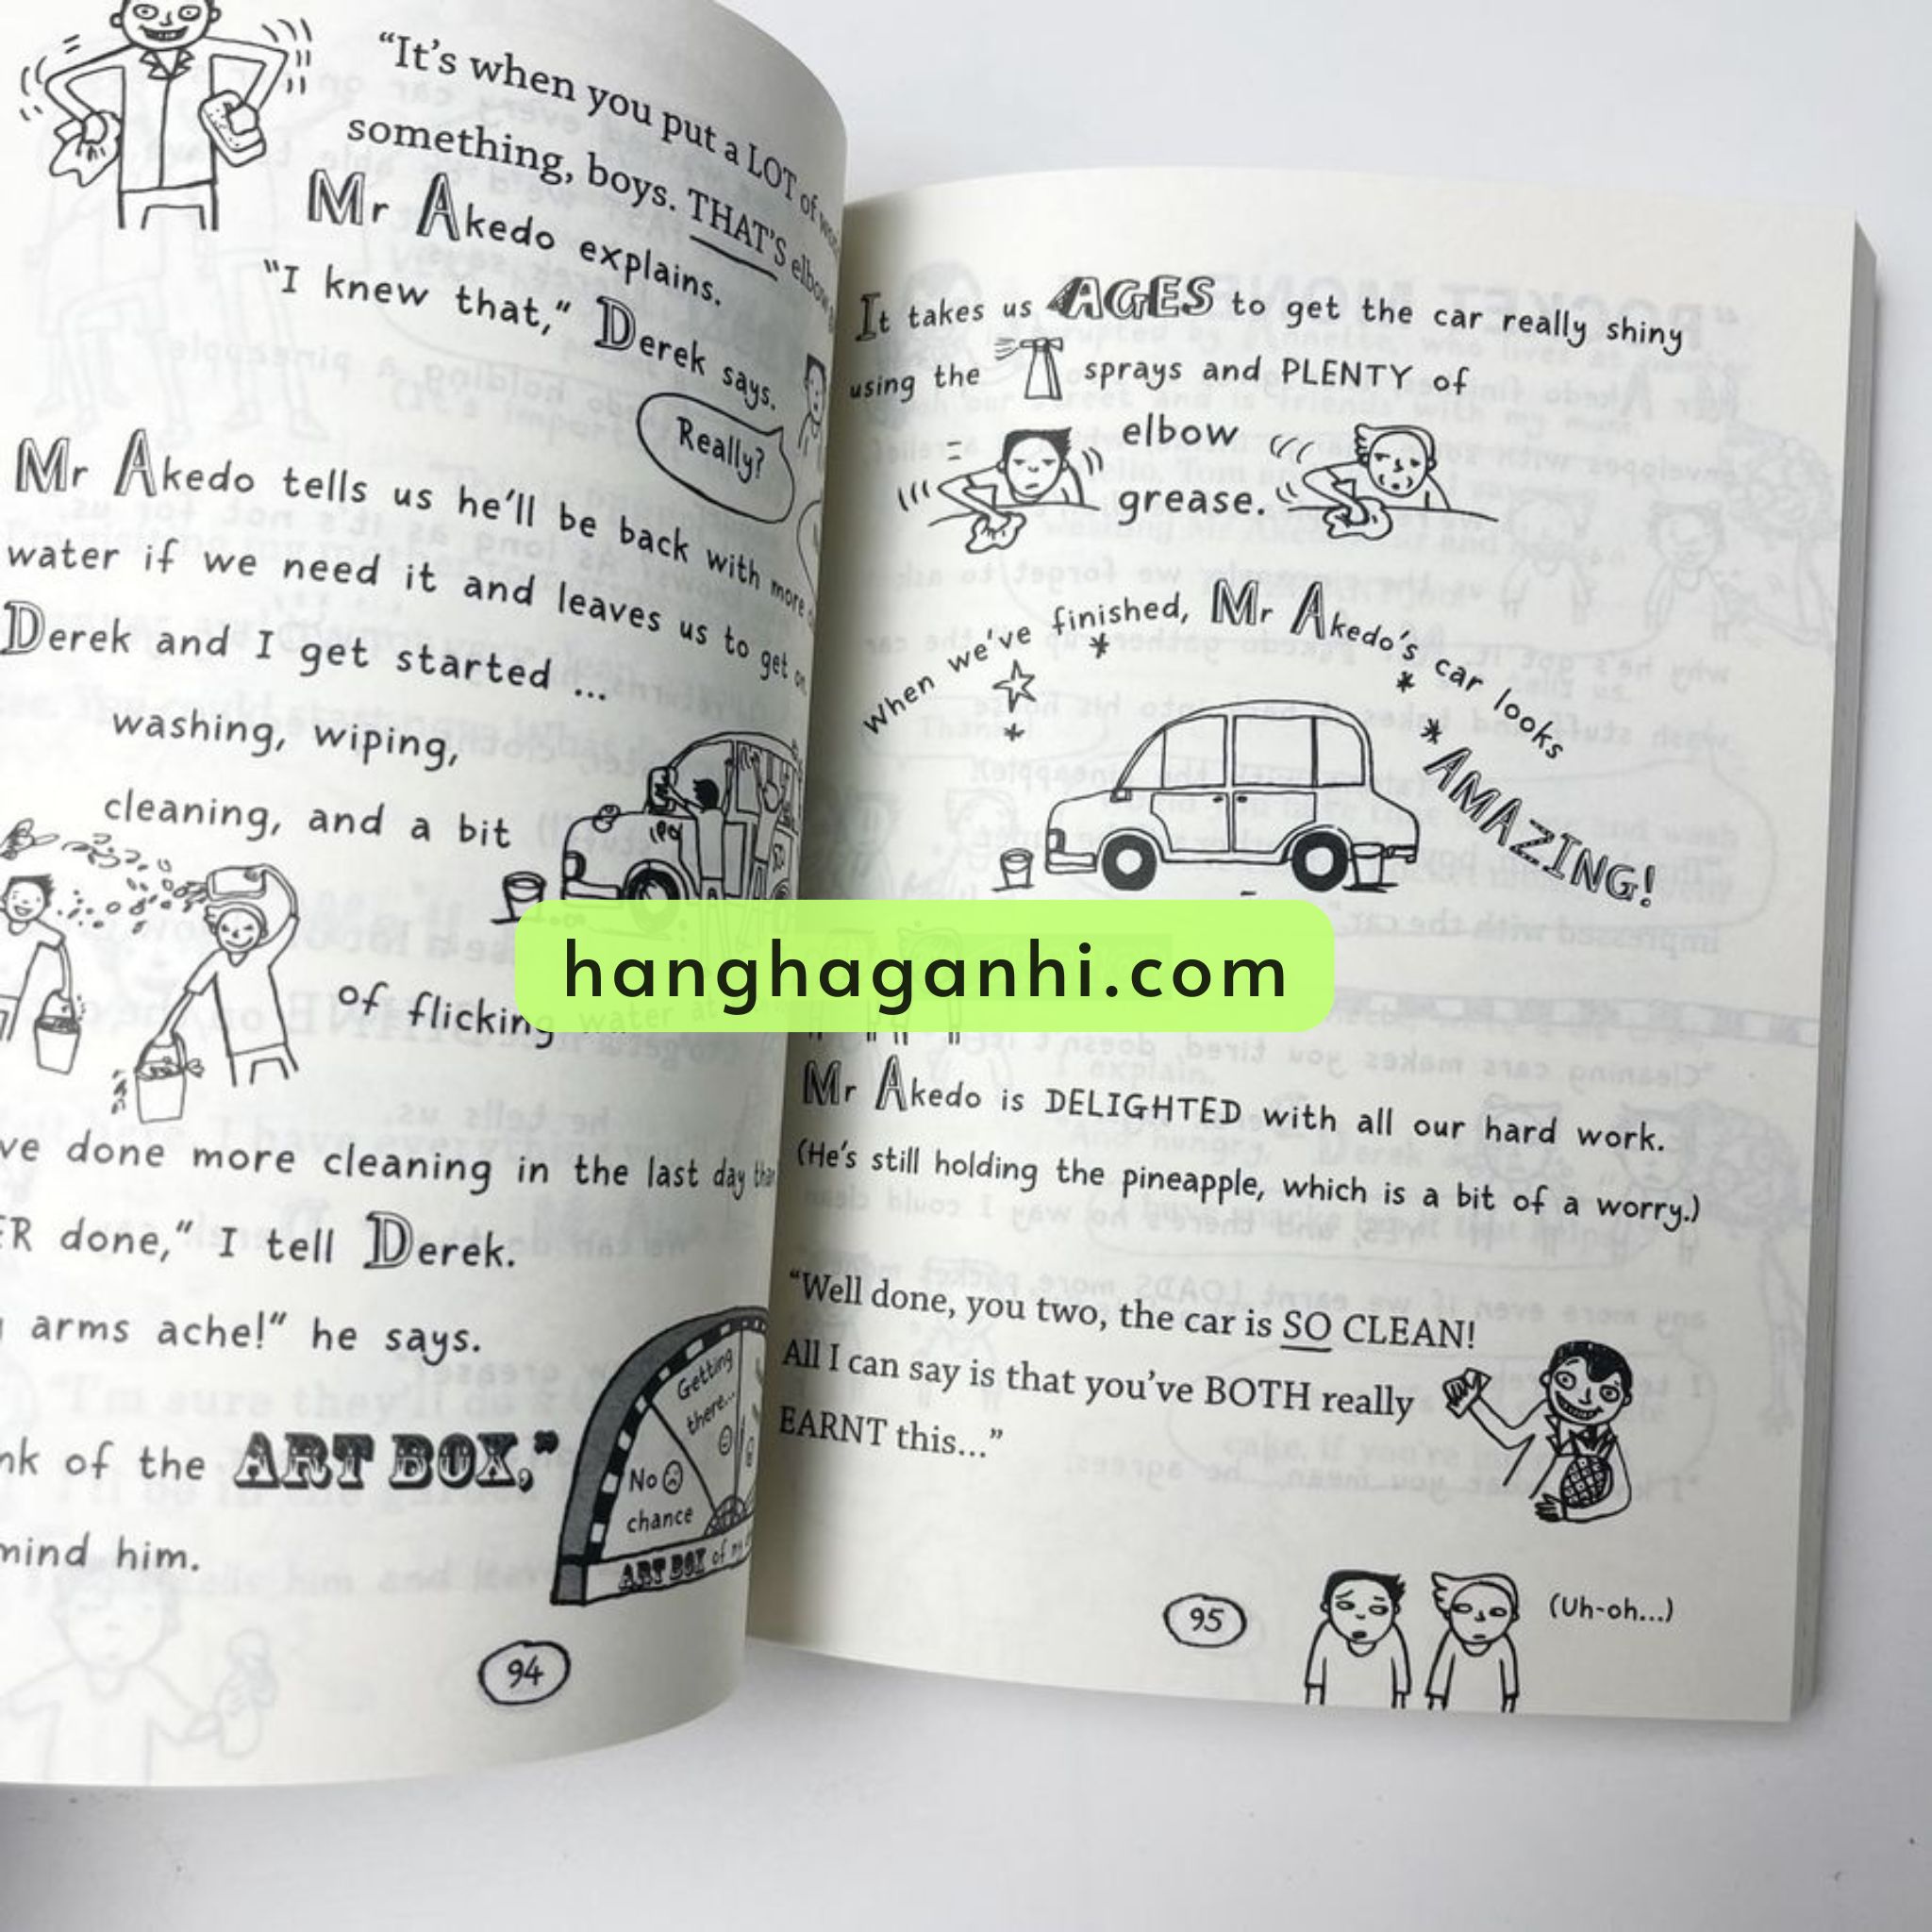 “It’s when you put a LOT of
something, boys. THAT’S elbow
Mr Akedo explains.
“I knew that,” Derek says.
Really?
Mr Akedo tells us he’ll be back with more
water if we need it and leaves us to get on.
Derek and I get started ...
washing, wiping,
cleaning, and a bit
of flicking water at
ve done more cleaning in the last day than
ER done,” I tell Derek.
arms ache!” he says.
nk of the ART BOX,”
mind him.
Getting
there...
No
chance
ART BOX of my
94
It takes us AGES to get the car really shiny
using the sprays and PLENTY of
elbow
grease.
When we’ve finished, Mr Akedo’s car looks
AMAZING!
hanghaganhi.com
Mr Akedo is DELIGHTED with all our hard work.
(He’s still holding the pineapple, which is a bit of a worry.)
“Well done, you two, the car is SO CLEAN!
All I can say is that you’ve BOTH really
EARNT this...”
95
(Uh-oh...)